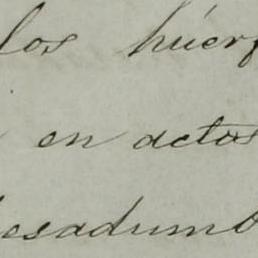 los huérf
en actos
esadumb